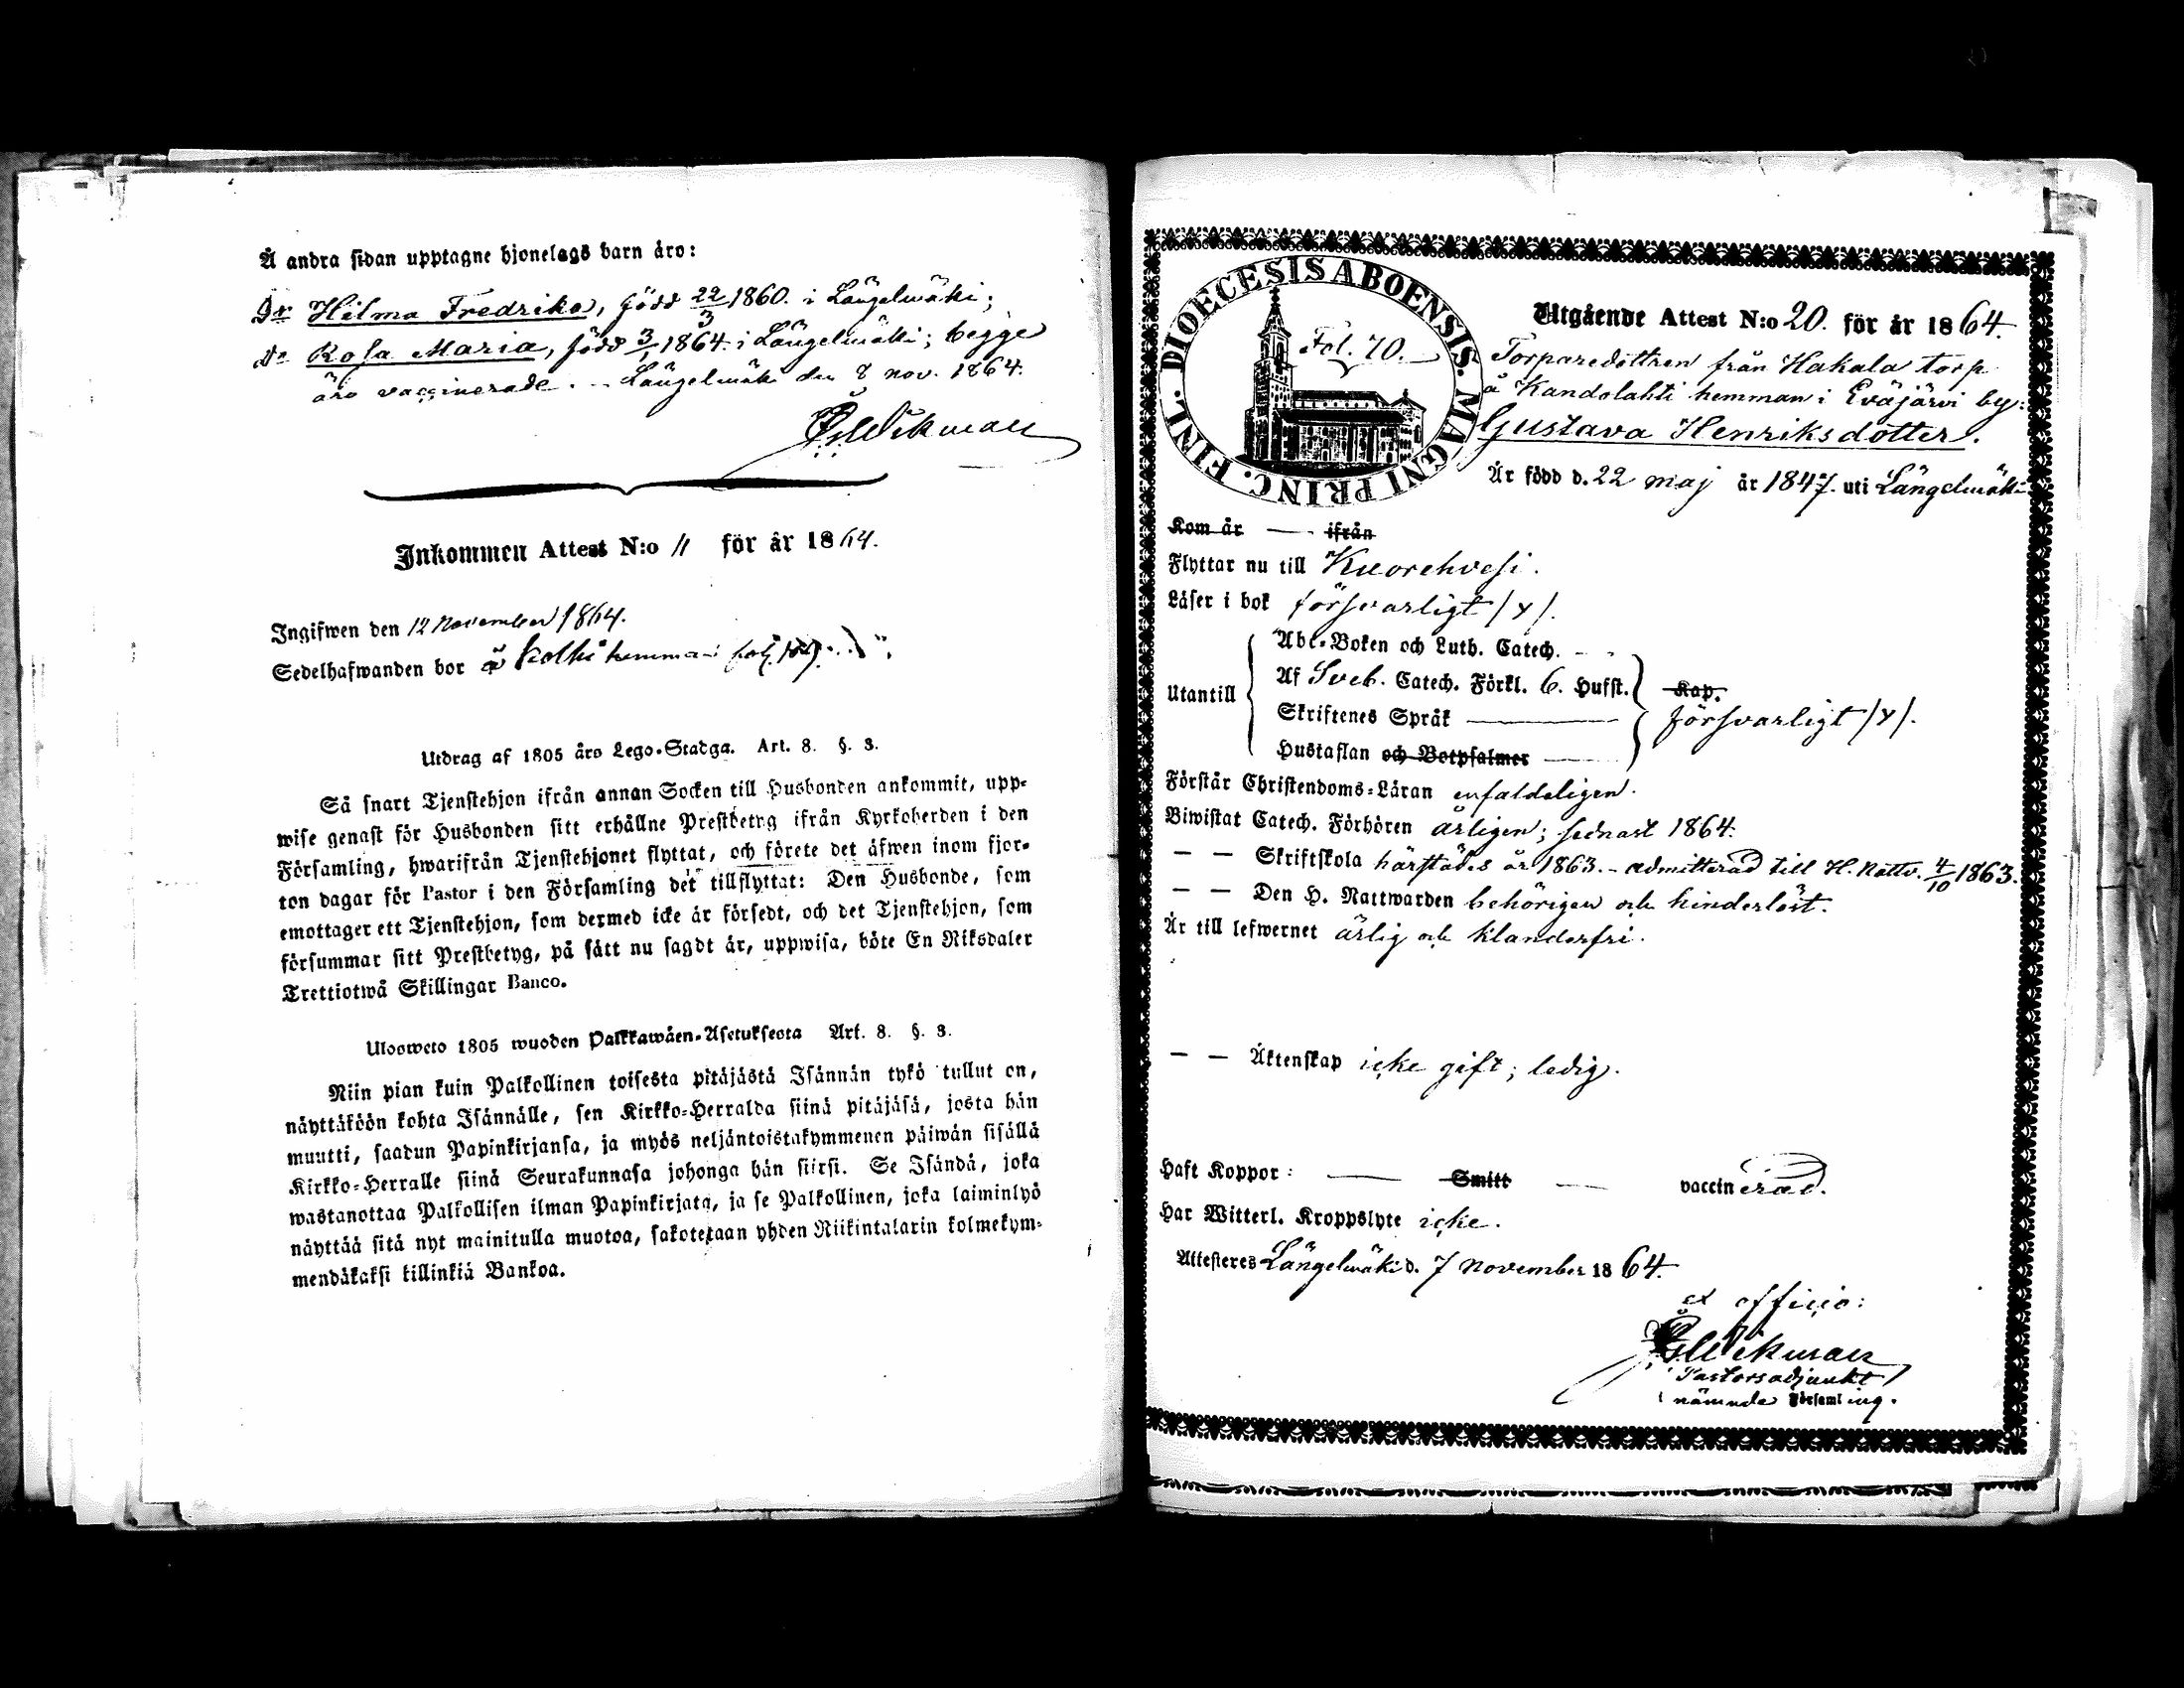 Å andra sidan upptagne hjonelags barn äro:
Dr Hilma Fredrika, född 22/3 1860. i Längelmäki;
Dr Rosa Maria, född 3/1 1864. i Längelmäki; begge
äro vaccinerade. – Längelmäki den 8 nov. 1864.
Wikman
Inkommen Attest N:o 11 för år 1864.
Ingifwen den 12 November 1864.
Sedelhafwanden bor å Kolhi hemman
Utdrag af 1805 års Lego-Stadga. Art. 8. §. 3.
Så snart Tjenstehjon ifrån annan Socken till Husbonden ankommit, upp-
wise genast för Husbonden sitt erhållne Prestbetyg ifrån Kyrkoherden i den
Församling, hwarifrån Tjenstehjonet flyttat, och förete det äfwen inom fjor-
ton dagar för Pastor i den Församling det tillflyttat: Den Husbonde, som
emottager ett Tjenstehjon, som dermed icke är försedt, och det Tjenstehjon, som
försummar sitt Prestbetyg, på sätt nu sagdt är, uppwisa, böte En Riksdaler
Trettiotwå Skillingar Banco.
Ulosweto 1805 wuoden Palkkawäen-Asetuksesta Art. 8. §. 3.
Niin pian kuin Palkollinen toisesta pitäjästä Isännän tykö tullut on,
näyttäköön kohta Isännälle, sen Kirkko-Herralda siinä pitäjäsä, josta hän
muutti, saadun Papinkirjansa, ja myös neljäntoistakymmenen päiwän sisällä
Kirkko-Herralle siinä Seurakunnasa johonga hän siirsi. Se Isändä, joka
wastanottaa Palkollisen ilman Papinkirjata, ja se Palkollinen, joka laiminlyö
näyttää sitä nyt mainitulla muotoa, sakotetaan yhden Riikintalarin kolmekym-
mendäkaksi killinkiä Bankoa.
FINL. DIOECESIS ABOENSIS. MAGNI PRINC.
Fol. 70.
Utgående Attest N:o 20. för år 1864.
Torparedottren från Hakala torp
å Kandolahti hemman i Eväjärvi by:
Gustava Henriksdotter.
Är född d. 22 maj år 1847. uti Längelmäki
Kom år — ifrån
Flyttar nu till Kuorehvesi.
Läser i bok försvarligt /y/.
Utantill
Abc-Boken och Luth. Catech. - -
Af Sveb. Catech. Förkl. 6. Hufst.
Skriftenes Språk —
Hustaflan och Botpsalmer —
Kap.
försvarligt /y/.
Förstår Christendoms-Läran enfaldeligen.
Biwistat Catech. Förhören årligen; sednast 1864.
— — Skriftskola härstädes år 1863. - admitterad till H. Nattv. 4/10 1863.
— — Den H. Nattwarden behörigen och hinderlöst.
Är till lefwernet ärlig och klanderfri.
— — Äktenskap icke gift; ledig.
Haft Koppor: — Smitt — vaccinerad.
Har Witterl. Kroppslyte icke.
Attesteres Längelmäki d. 7 November 1864.
ex officio:
Wikman
Pastorsadjunkt
i nämnde Församling.